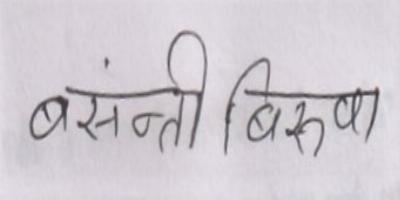 बसंन्ती बिरूवा